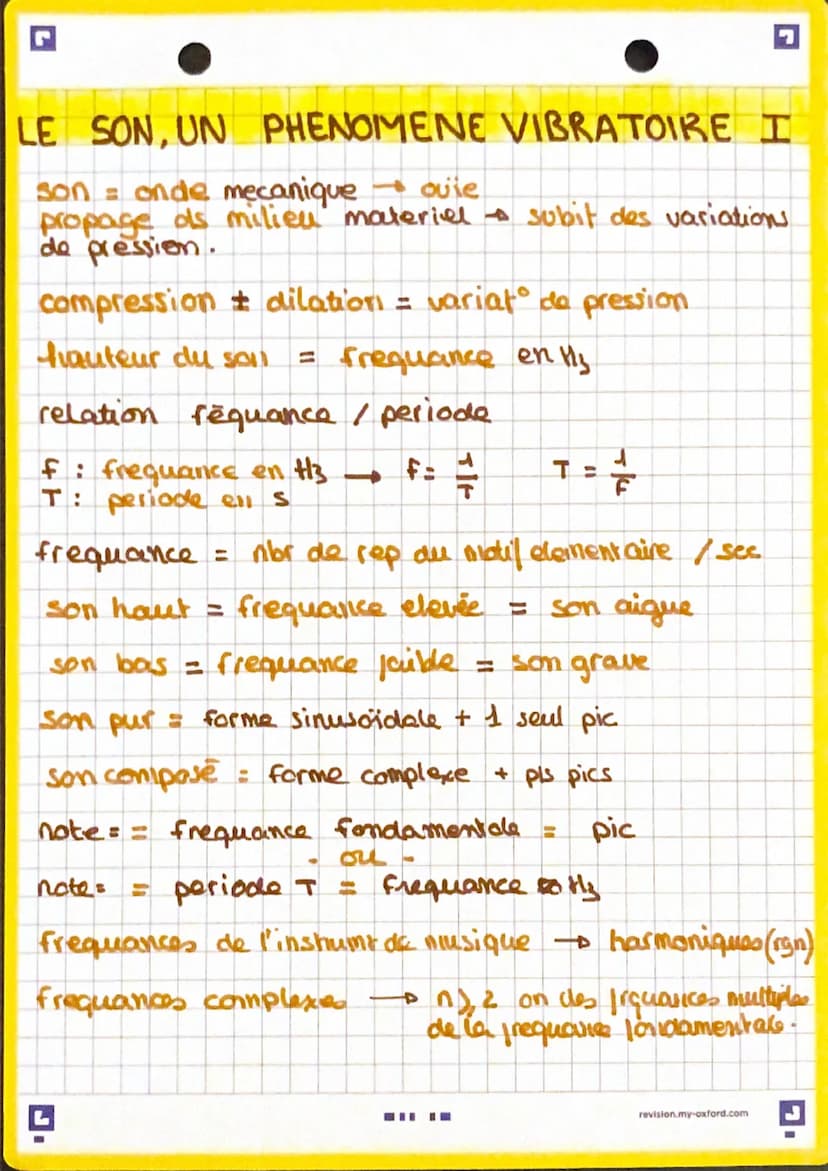 LE SON, UN PHENOMENE VIBRATOIRE I
son = onde mecanique → ouie
propage ds milieu materiel → subit des variations
de pression.
compression ± dilation = variat° de pression
hauteur du son = frequance en Hz
relation fréquance / periode
f : frequance en Hz → f = 1/T T = 1/F
T : periode en s
frequance = nbr de rep du motif elementaire / sec
son haut = frequance elevée = son aigue
son bas = frequance faible = son grave
son pur = forme sinusoïdale + 1 seul pic
son composé = forme complexe + pls pics
note = = frequance fondamentale = pic
- ou -
note = = periode T = frequance Hz
frequances de l'instrumt de musique → harmoniques (rgn)
frequances complexes → n⩾2 on des frquances multiples
de la frequance fondamentale.
revision.my-oxford.com